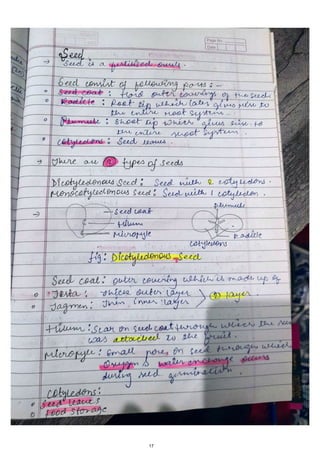 Page No.
Date
Seed
→ Seed is a fertilised ovule.
Seed consist of following parts :-
Seed coat : Hard outer coverings of the seed
Radicle : Root tip which later gives rise to
the entire root system.
Plumule : Shoot tip which gives rise to
the entire shoot system.
Cotyledons : Seed leaves.
→ There are 2 types of seeds
Dicotyledonous seed : Seed with 2 cotyledons.
Monocotyledonous seed : Seed with 1 cotyledon.
plumule
seed coat
Hilum
Micropyle
Radicle
cotyledons
fig : Dicotyledonous Seed
Seed coat : outer covering which is made up of
Testa : thick outer layer
Tagmen : Thin inner layer
layer
Hilum : Scar on seed coat through which the
was attached to the fruit.
Micropyle : Small pores on seed through which
Oxygen & water exchange occurs
during seed germination.
Cotyledons :
Seed leaves
Food storage
17